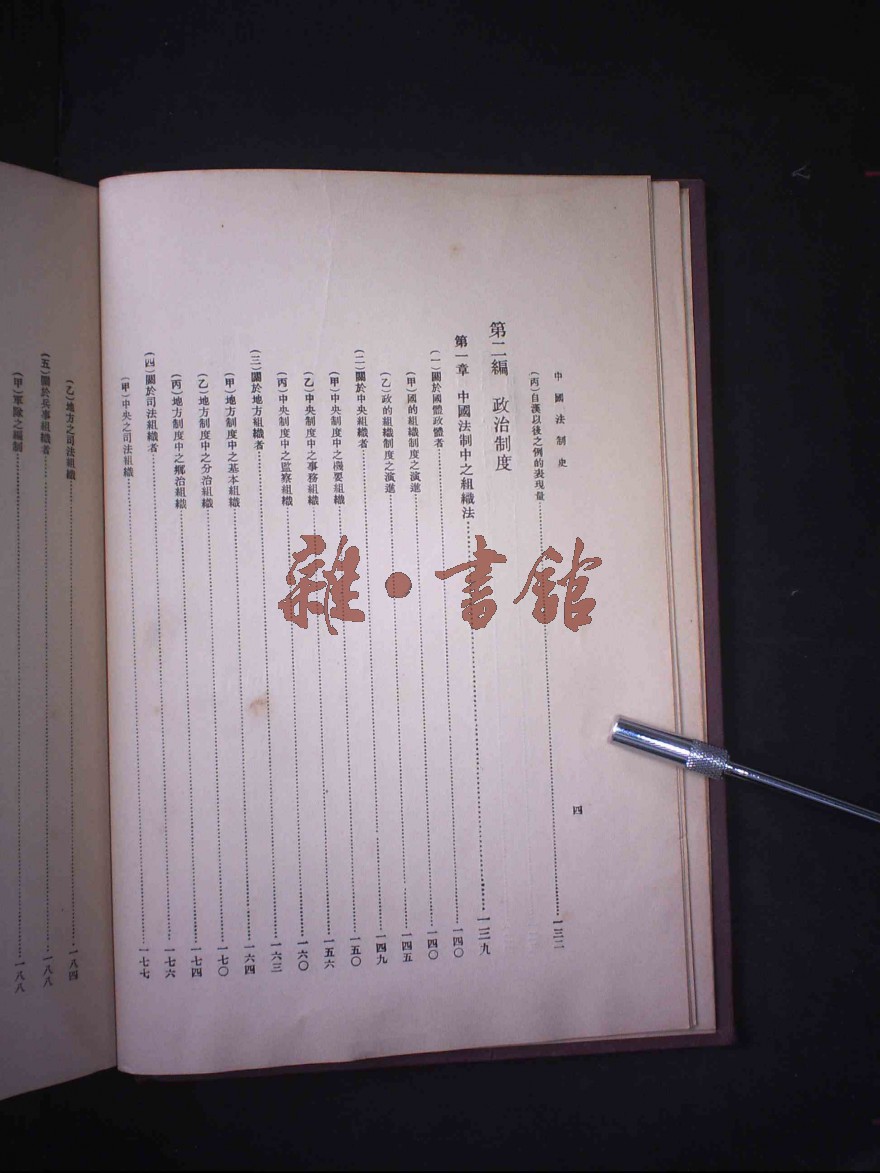 中國法制史
四
(丙)自漢以後之例的表現量……一三二
第二編 政治制度
第一章 中國法制中之組織法……一三九
(一)關於國體政體者……一四〇
(甲)國的組織制度之演進……一四〇
(乙)政的組織制度之演進……一四五
(二)關於中央組織者……一四九
(甲)中央制度中之機要組織……一五〇
(乙)中央制度中之事務組織……一五六
(丙)中央制度中之監察組織……一六〇
(三)關於地方組織者……一六三
(甲)地方制度中之基本組織……一六四
(乙)地方制度中之分治組織……一七〇
(丙)地方制度中之鄉治組織……一七四
(四)關於司法組織者……一七六
(甲)中央之司法組織……一七七
(乙)地方之司法組織……一八四
(五)關於兵事組織者……一八八
(甲)軍隊之編制……一八八
雜·書館